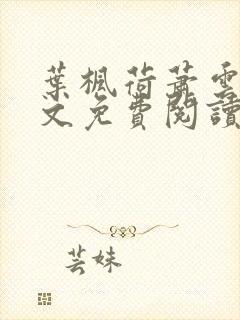 葉楓荷蕭雲
文免費閱讀
芸妹